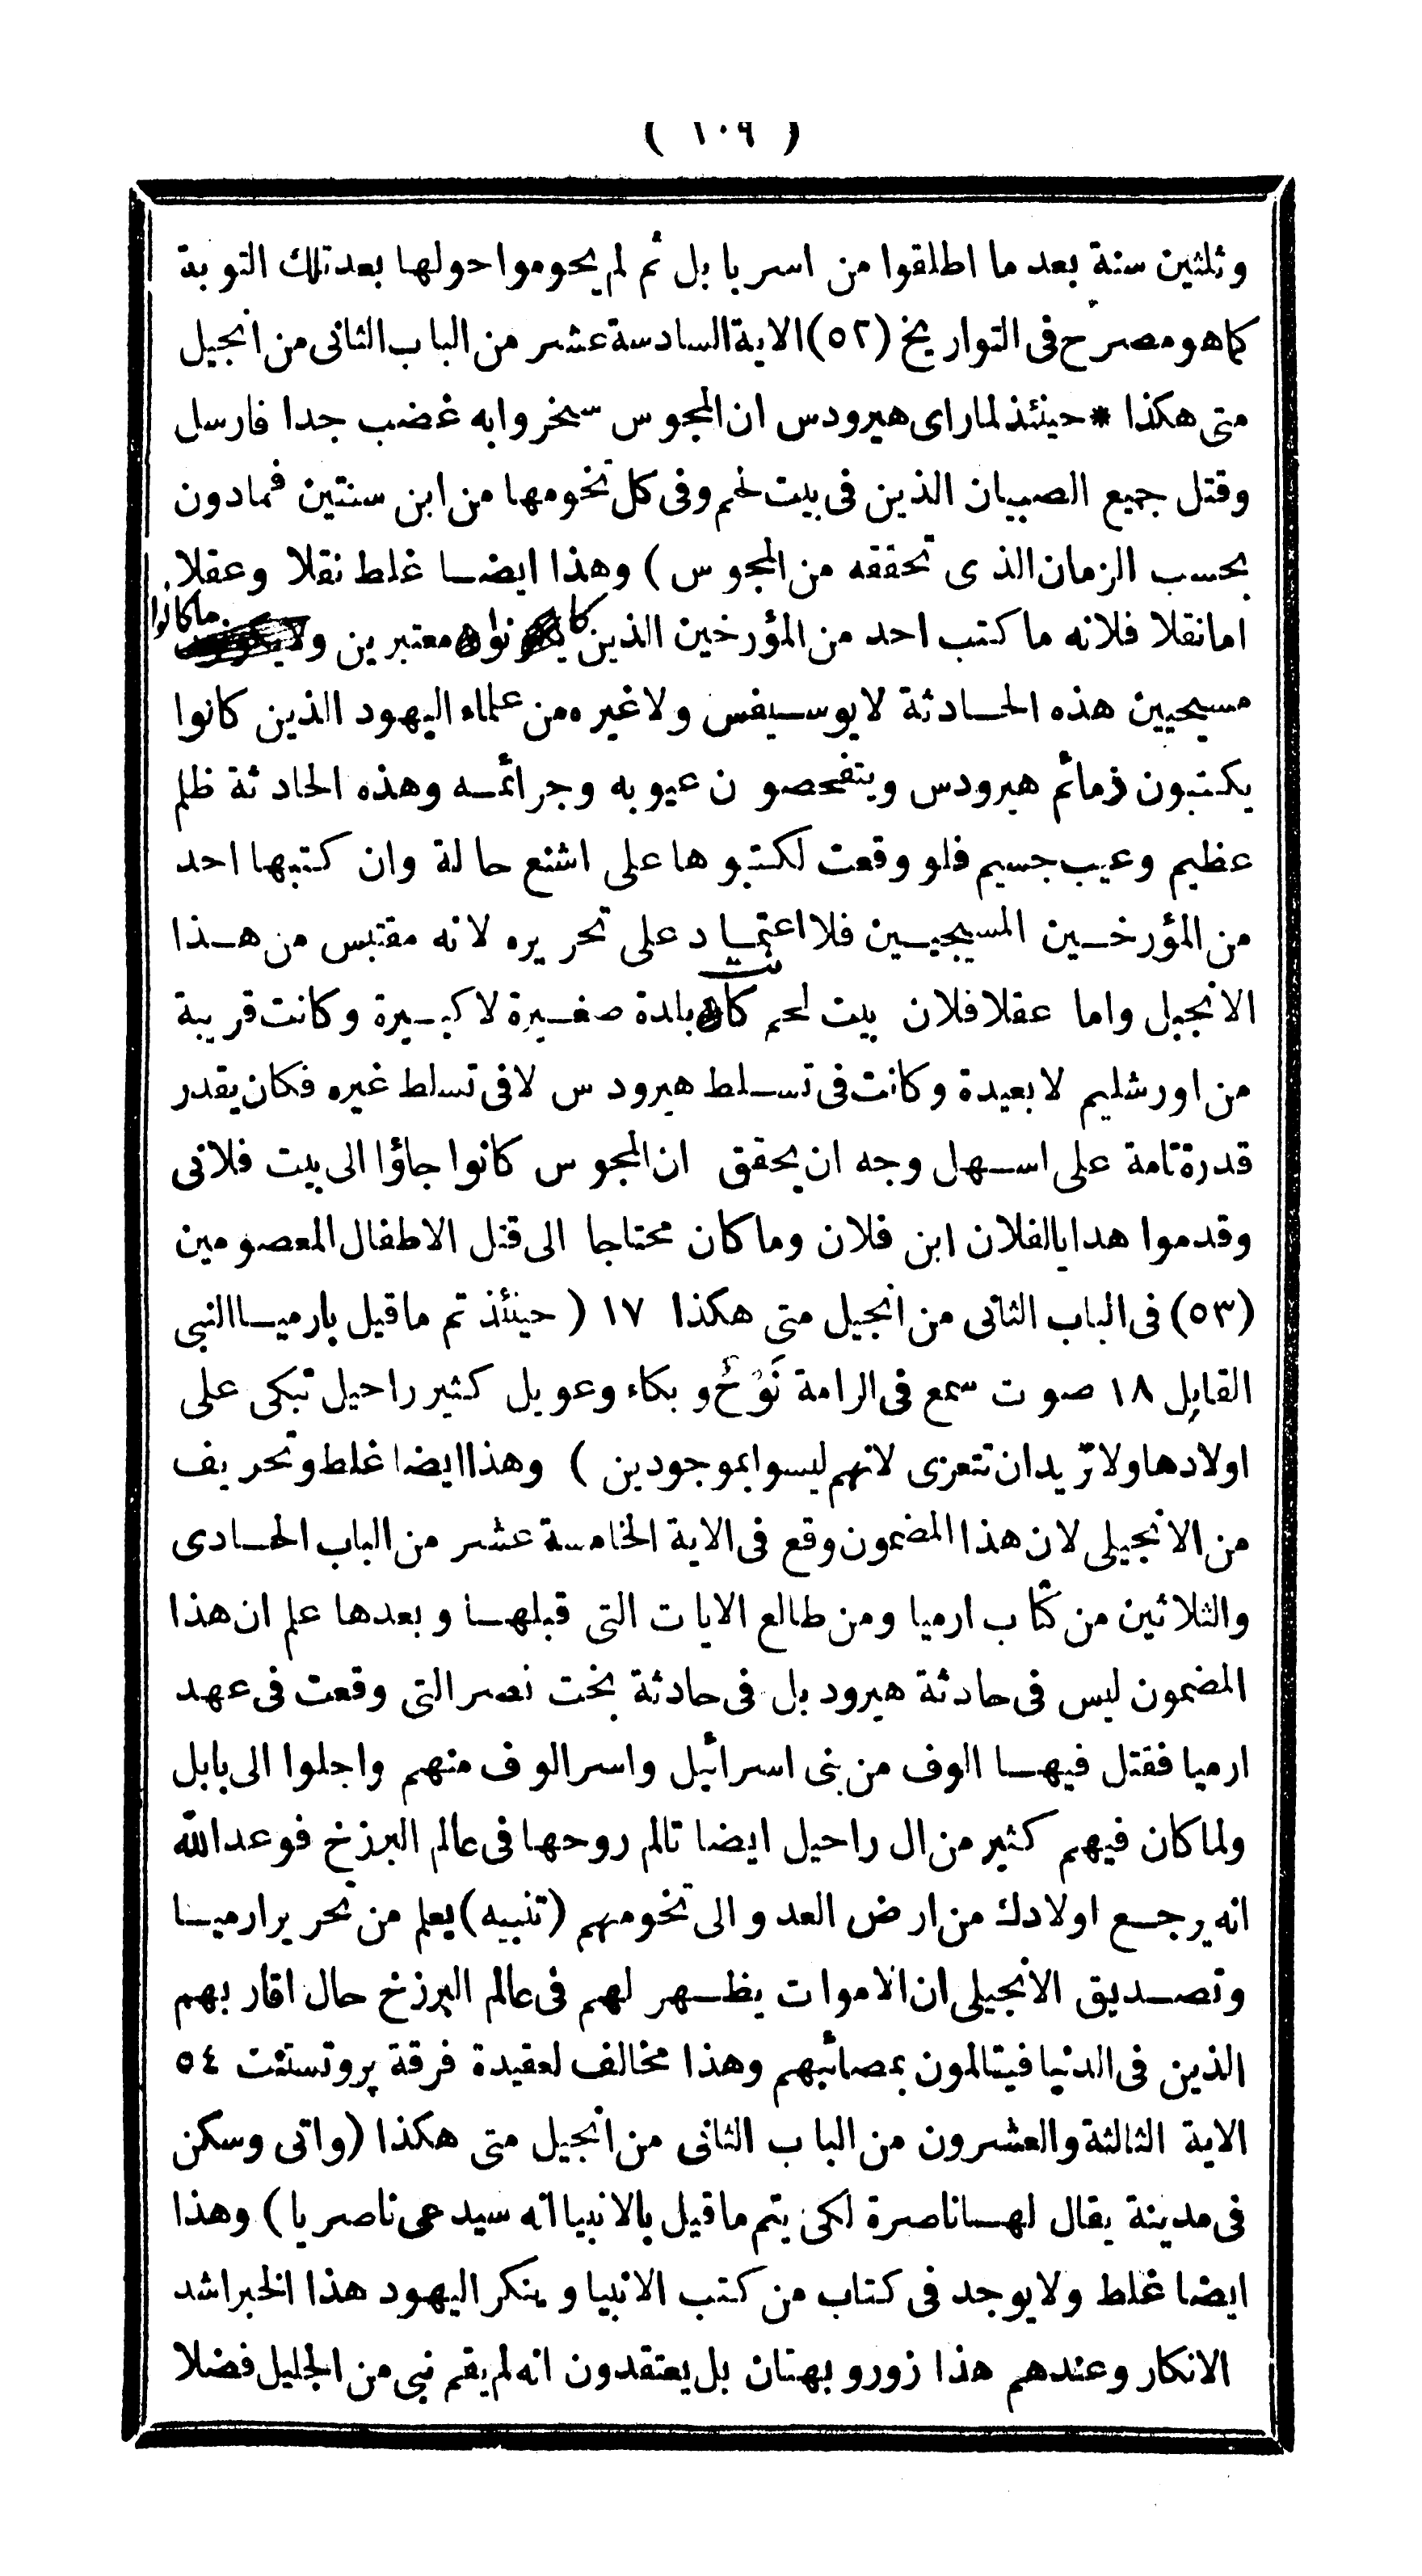 ( ١٠٩ )
وثلثين سنة بعد ما اطلقوا من اسر بابل ثم لم يحوموا حولها بعد تلك التوبة
كما هو مصرح فى التواريخ (٥٢) الاية السادسة عشر من الباب الثانى من انجيل
متى هكذا * حينئذ لما راى هيرودس ان المجوس سخروا به غضب جدا فارسل
وقتل جميع الصبيان الذين فى بيت لحم وفى كل تخومها من ابن سنتين فمادون
بحسب الزمان الذى تحققه من المجوس ) وهذا ايضا غلط نقلا وعقلا
اما نقلا فلانه ما كتب احد من المؤرخين الذين كانوا معتبرين وما كانوا
مسيحيين هذه الحادثة لا يوسيفس ولا غيره من علماء اليهود الذين كانوا
يكتبون ذمائم هيرودس ويتفحصون عيوبه وجرائمه وهذه الحادثة ظلم
عظيم وعيب جسيم فلو وقعت لكتبوها على اشنع حالة وان كتبها احد
من المؤرخين المسيحيين فلا اعتماد على تحريره لانه مقتبس من هذا
الانجيل واما عقلا فلان بيت لحم كانت بلدة صغيرة لا كبيرة وكانت قريبة
من اورشليم لا بعيدة وكانت فى تسلط هيرودس لا فى تسلط غيره فكان يقدر
قدرة تامة على اسهل وجه ان يحقق ان المجوس كانوا جاؤا الى بيت فلانى
وقدموا هدايا لفلان ابن فلان وما كان محتاجا الى قتل الاطفال المعصومين
(٥٣) فى الباب الثانى من انجيل متى هكذا ١٧ ( حينئذ تم ما قيل بارميا النبى
القايل ١٨ صوت سمع فى الرامة نَوْحٌ و بكاء وعويل كثير راحيل تبكى على
اولادها ولا تريد ان تتعزى لانهم ليسوا بموجودين ) وهذا ايضا غلط وتحريف
من الانجيلى لان هذا المضمون وقع فى الاية الخامسة عشر من الباب الحادى
والثلاثين من كتاب ارميا ومن طالع الايات التى قبلها وبعدها علم ان هذا
المضمون ليس فى حادثة هيرود بل فى حادثة بخت نصر التى وقعت فى عهد
ارميا فقتل فيها الوف من بنى اسرائيل واسر الوف منهم واجلوا الى بابل
ولما كان فيهم كثير من ال راحيل ايضا تالم روحها فى عالم البرزخ فوعد الله
انه يرجع اولادك من ارض العدو الى تخومهم (تنبيه) يعلم من تحرير ارميا
وتصديق الانجيلى ان الاموات يظهر لهم فى عالم البرزخ حال اقاربهم
الذين فى الدنيا فيتالمون بمصائبهم وهذا مخالف لعقيدة فرقة پروتستنت ٥٤
الاية الثالثة والعشرون من الباب الثانى من انجيل متى هكذا (واتى وسكن
فى مدينة يقال لها ناصرة لكى يتم ما قيل بالانبيا انه سيدعى ناصريا ) وهذا
ايضا غلط ولا يوجد فى كتاب من كتب الانبيا و ينكر اليهود هذا الخبر اشد
الانكار وعندهم هذا زور و بهتان بل يعتقدون انه لم يقم نبى من الجليل فضلا